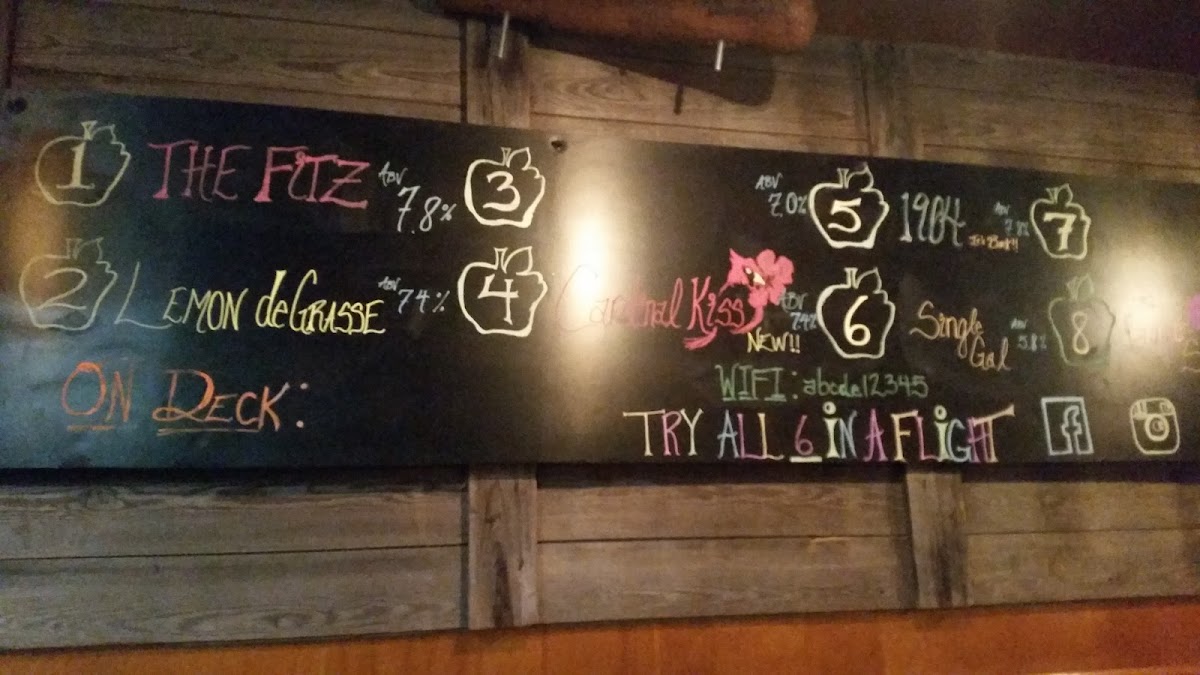 1 THE FITZ ABV 7.8%
2 LEMON deGRASSE ABV 7.4%
ON DECK:
3 ABV 7.0%
4 Cardinal Kiss ABV 7.4%
NEW!!
5 1904 ABV
6 Single Gal ABV 5.8%
7
8
WIFI: abcde12345
TRY ALL 6 IN A FLIGHT
f